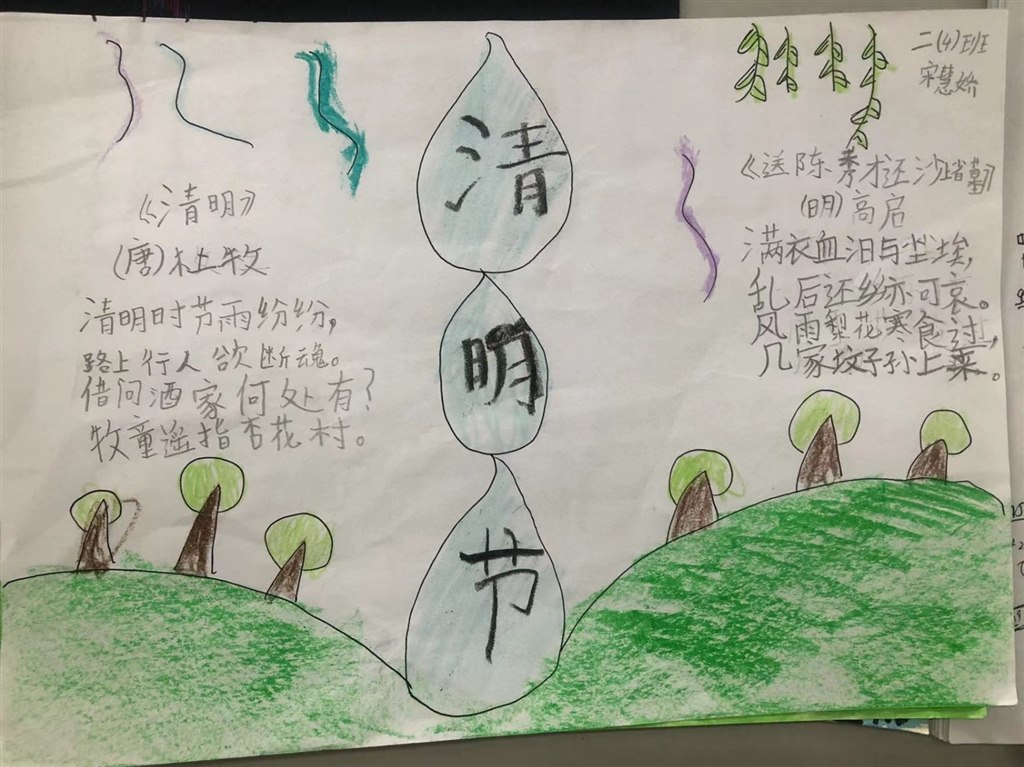 清
明
节
《清明》
(唐)杜牧
清明时节雨纷纷,
路上行人欲断魂。
借问酒家何处有?
牧童遥指杏花村。
二(4)班
宋慧娇
《送陈秀才还沙上省墓》
(明)高启
满衣血泪与尘埃,
乱后还乡亦可哀。
风雨梨花寒食过,
几家坟子孙上来。